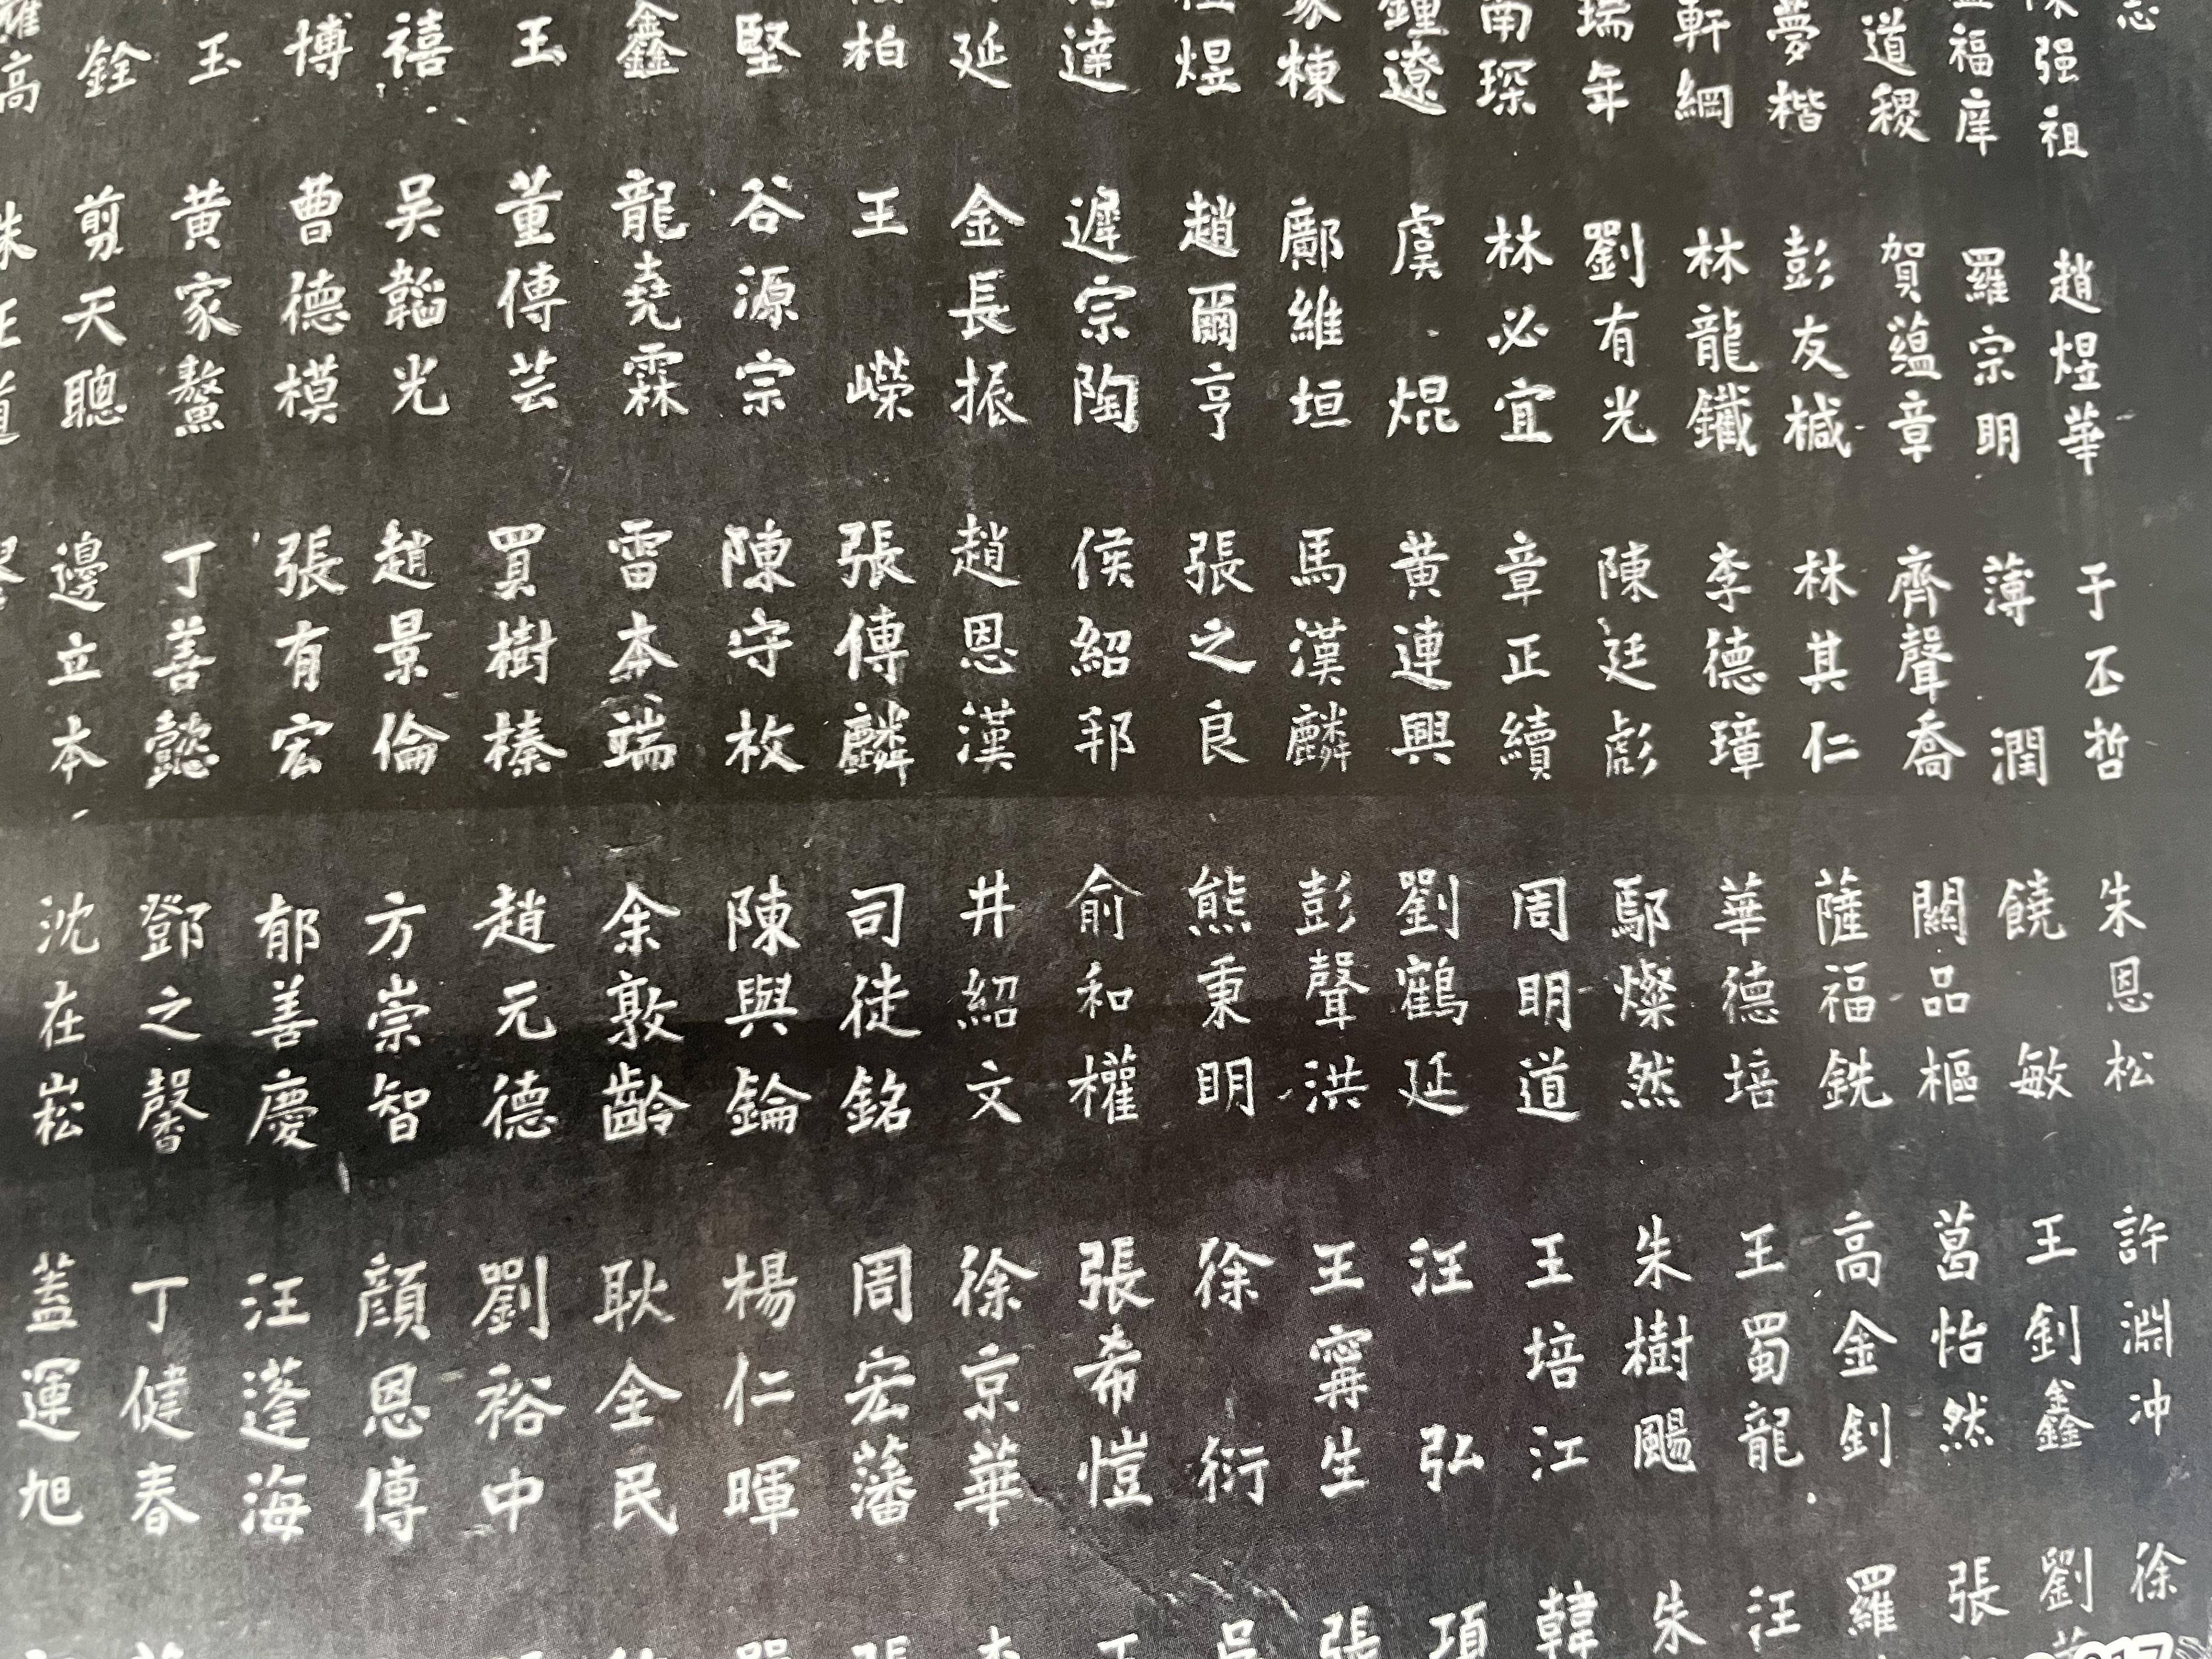 强祖 趙煜華 于丕哲 朱恩松 許淵冲 徐
福庠 羅宗明 薄潤 饒敏 王釗鑫 劉
道稷 賀蘊章 齊聲喬 關品樞 葛怡然 張
夢楷 彭友棫 林其仁 薩福銑 高金釗 羅
軒綱 林龍鐵 李德璋 華德培 王蜀龍 汪
瑞年 劉有光 陳廷彪 鄢燦然 朱樹颺 朱
南琛 林必宜 章正續 周明道 王培江 韓
鍾遼 虞焜 黄連興 劉鶴延 汪弘 項
家棟 鄺維垣 馬漢麟 彭聲洪 王寗生 張
煜 趙爾亨 張之良 熊秉明 徐衍
達 遲宗陶 侯紹邦 俞和權 張希愷
延 金長振 趙恩漢 井紹文 徐京華
柏 王嶸 張傳麟 司徒銘 周宏藩
堅 谷源宗 陳守枚 陳與錀 楊仁暉
鑫 龍堯霖 雷本端 余敦齡 耿全民
玉 董傳芸 買樹榛 趙元德 劉裕中
禧 吴韜光 趙景倫 方崇智 顔恩傳
博 曹德模 張有宏 郁善慶 汪蓬海
玉 黄家鰲 丁善懿 鄧之馨 丁健春
銓 剪天聰 邊立本 沈在崧 蓋運旭
高